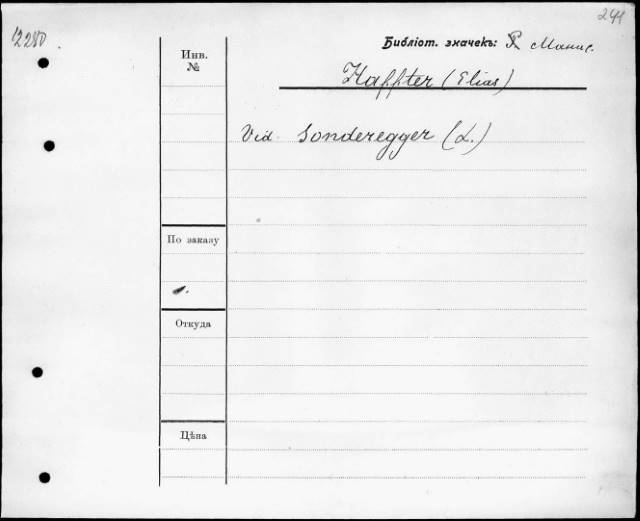 12280
241
Инв.
№
Библіот. значекъ:
Haffter (Elias)
Vid. Sonderegger (L.)
По заказу
Откуда
Цѣна